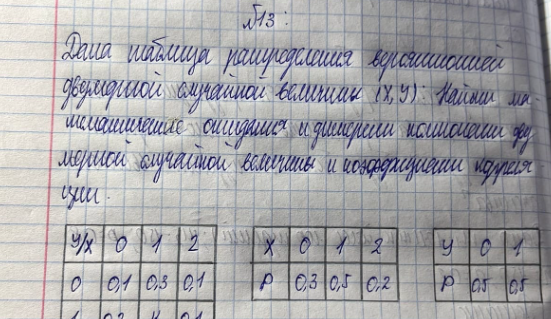 №13:
Дана таблица распределения вероятностей
двумерной случайной величины (X,Y). Найти ма-
тематические ожидания и дисперсии компонент дву
мерной случайной величины и коэффициент корреля-
ции.
Y/X 0 1 2 X 0 1 2 Y 0 1
0 0,1 0,3 0,1 P 0,3 0,5 0,2 P 0,5 0,5